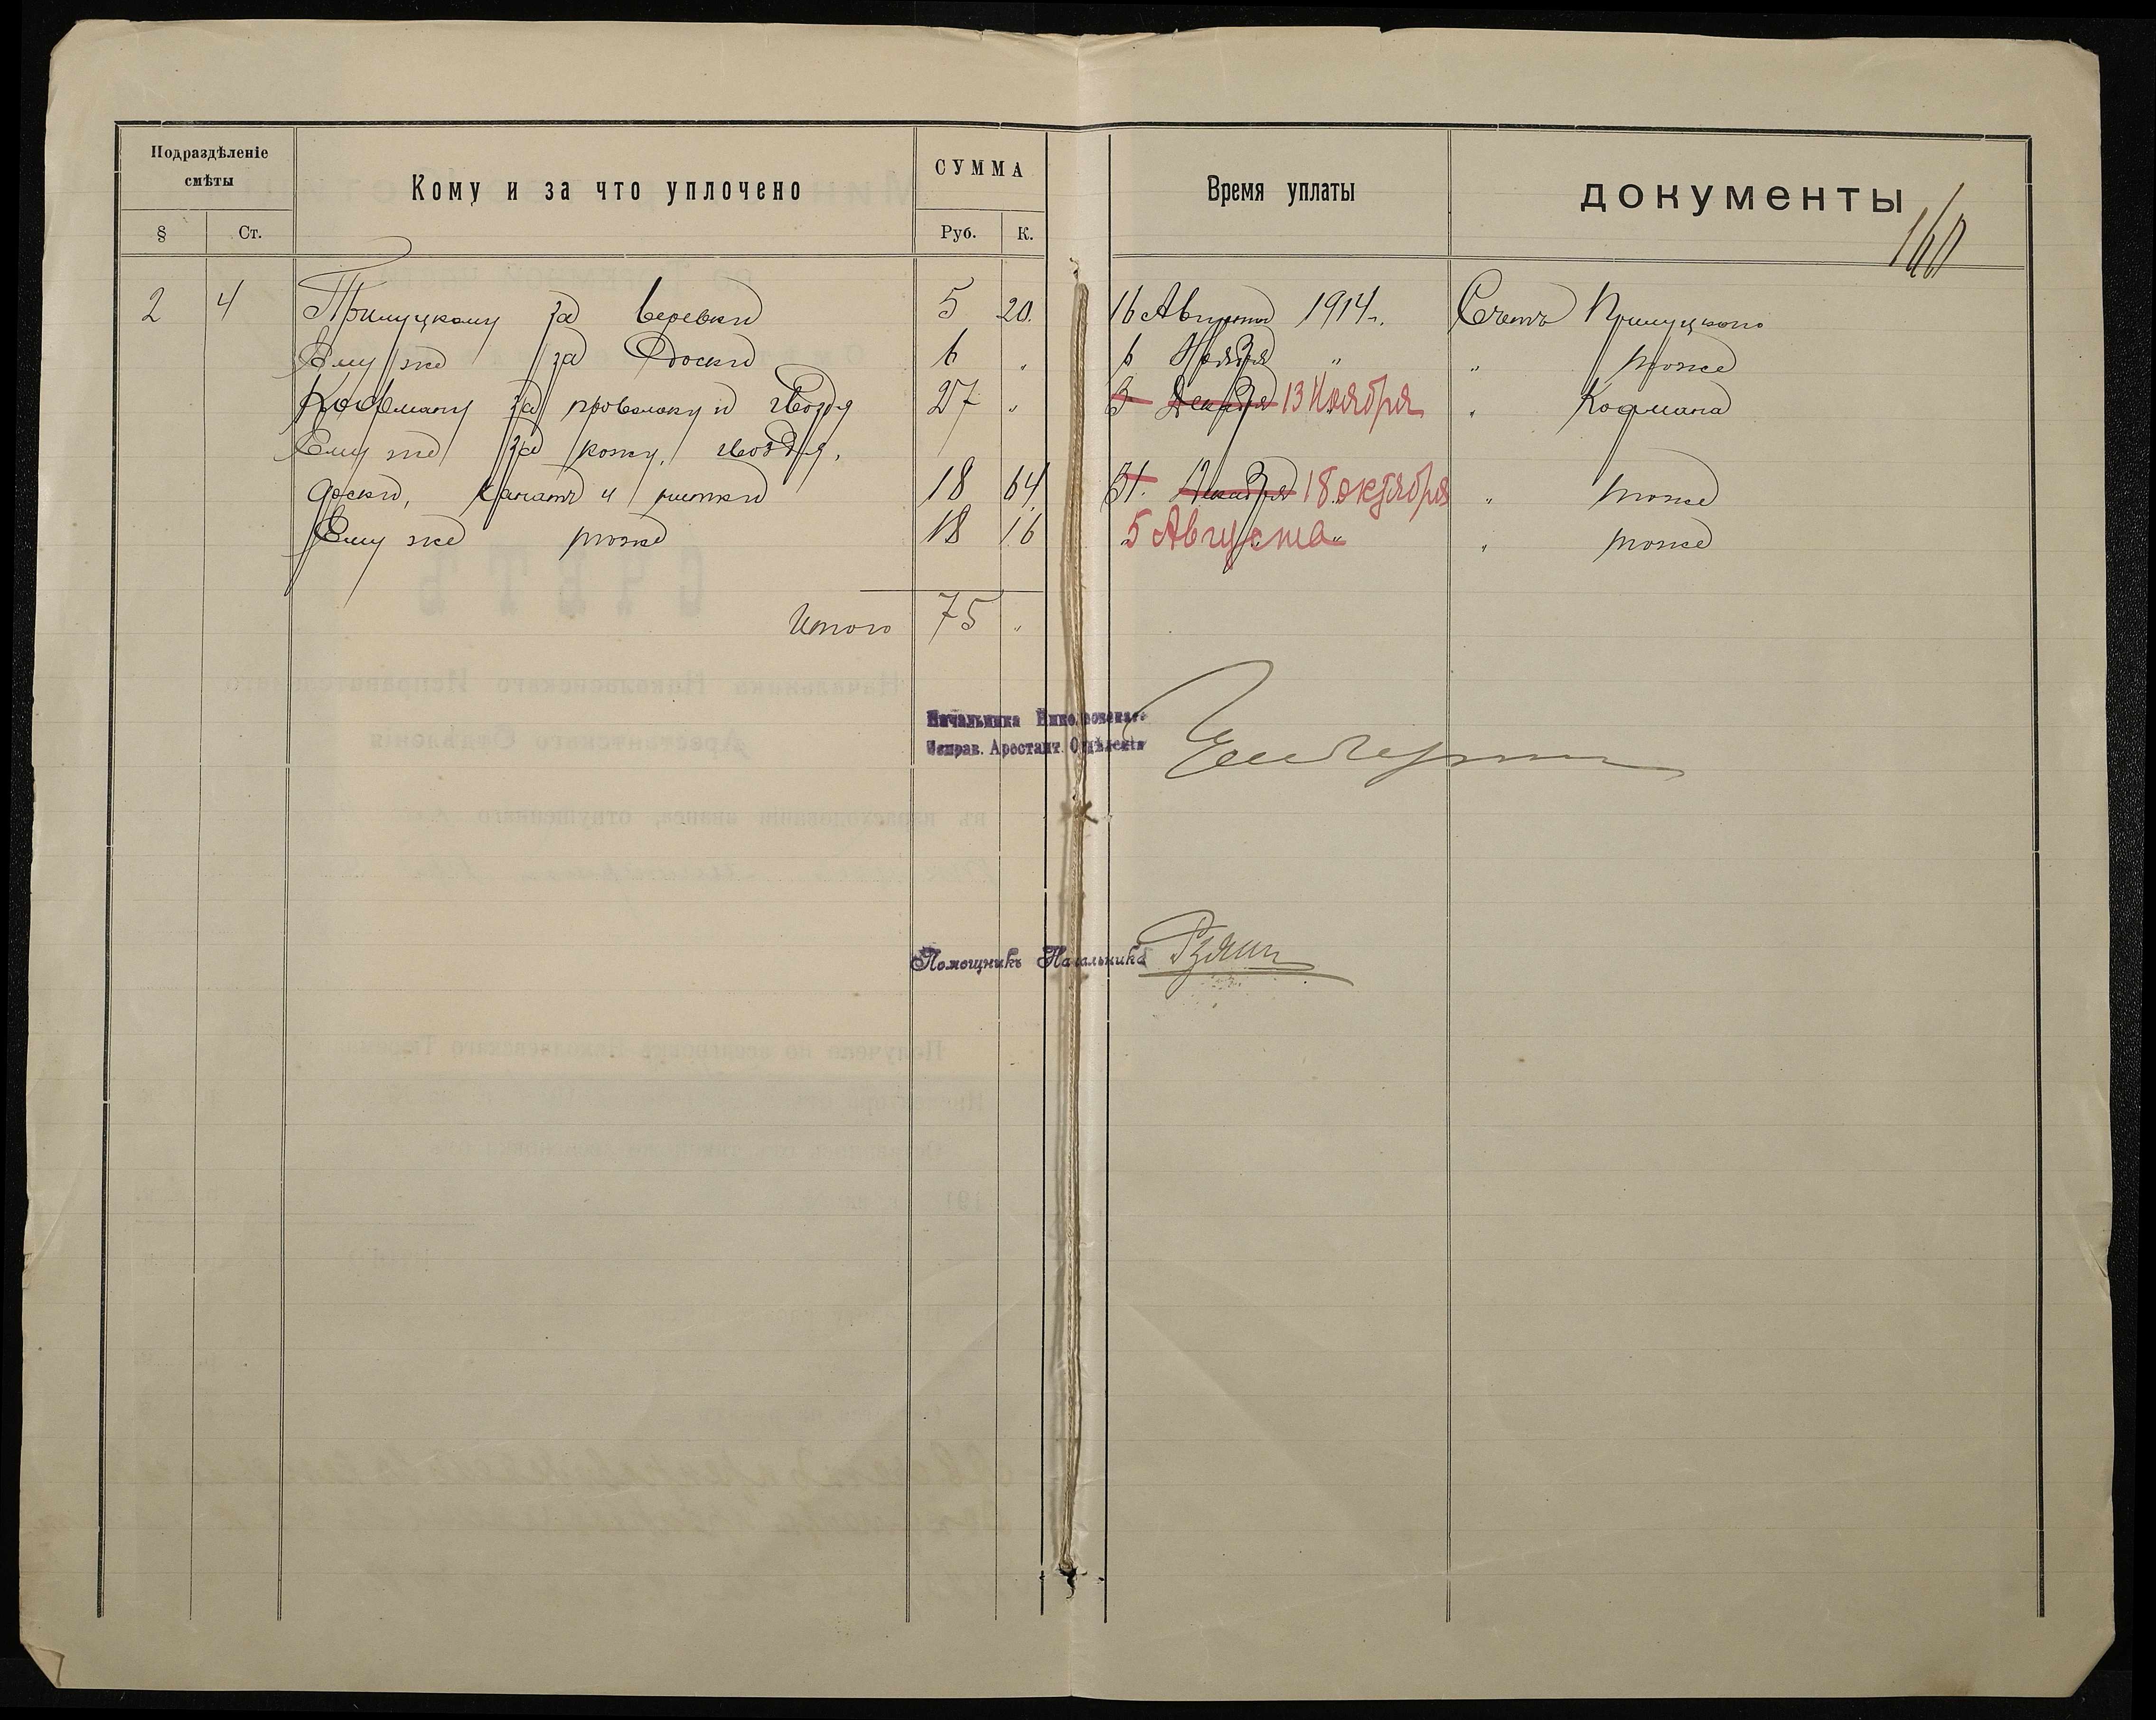 Подраздѣленіе смѣты
Кому и за что уплочено
СУММА
Время уплаты
ДОКУМЕНТЫ
§ Ст. Руб. К.
160
2 4 Прилуцкому за веревки 5 20. 16 Августа 1914 г. Счетъ Прилуцкого
Ему же за доски 6 „ 6 Ноября „ „ тоже
Кофману за проволоку и гвозди 27 „ 3 Декабря 13 Ноября „ Кофмана
Ему же за кожу, гвозди,
доски, канатъ и нитки 18 64 31. Декабря 18 октября „ тоже
Ему же тоже 18 16 5 Августа „ „ тоже
Итого 75 „
Начальника Николаевскаго
Исправ. Арестант. Отдѣленія
Помощникъ Начальника